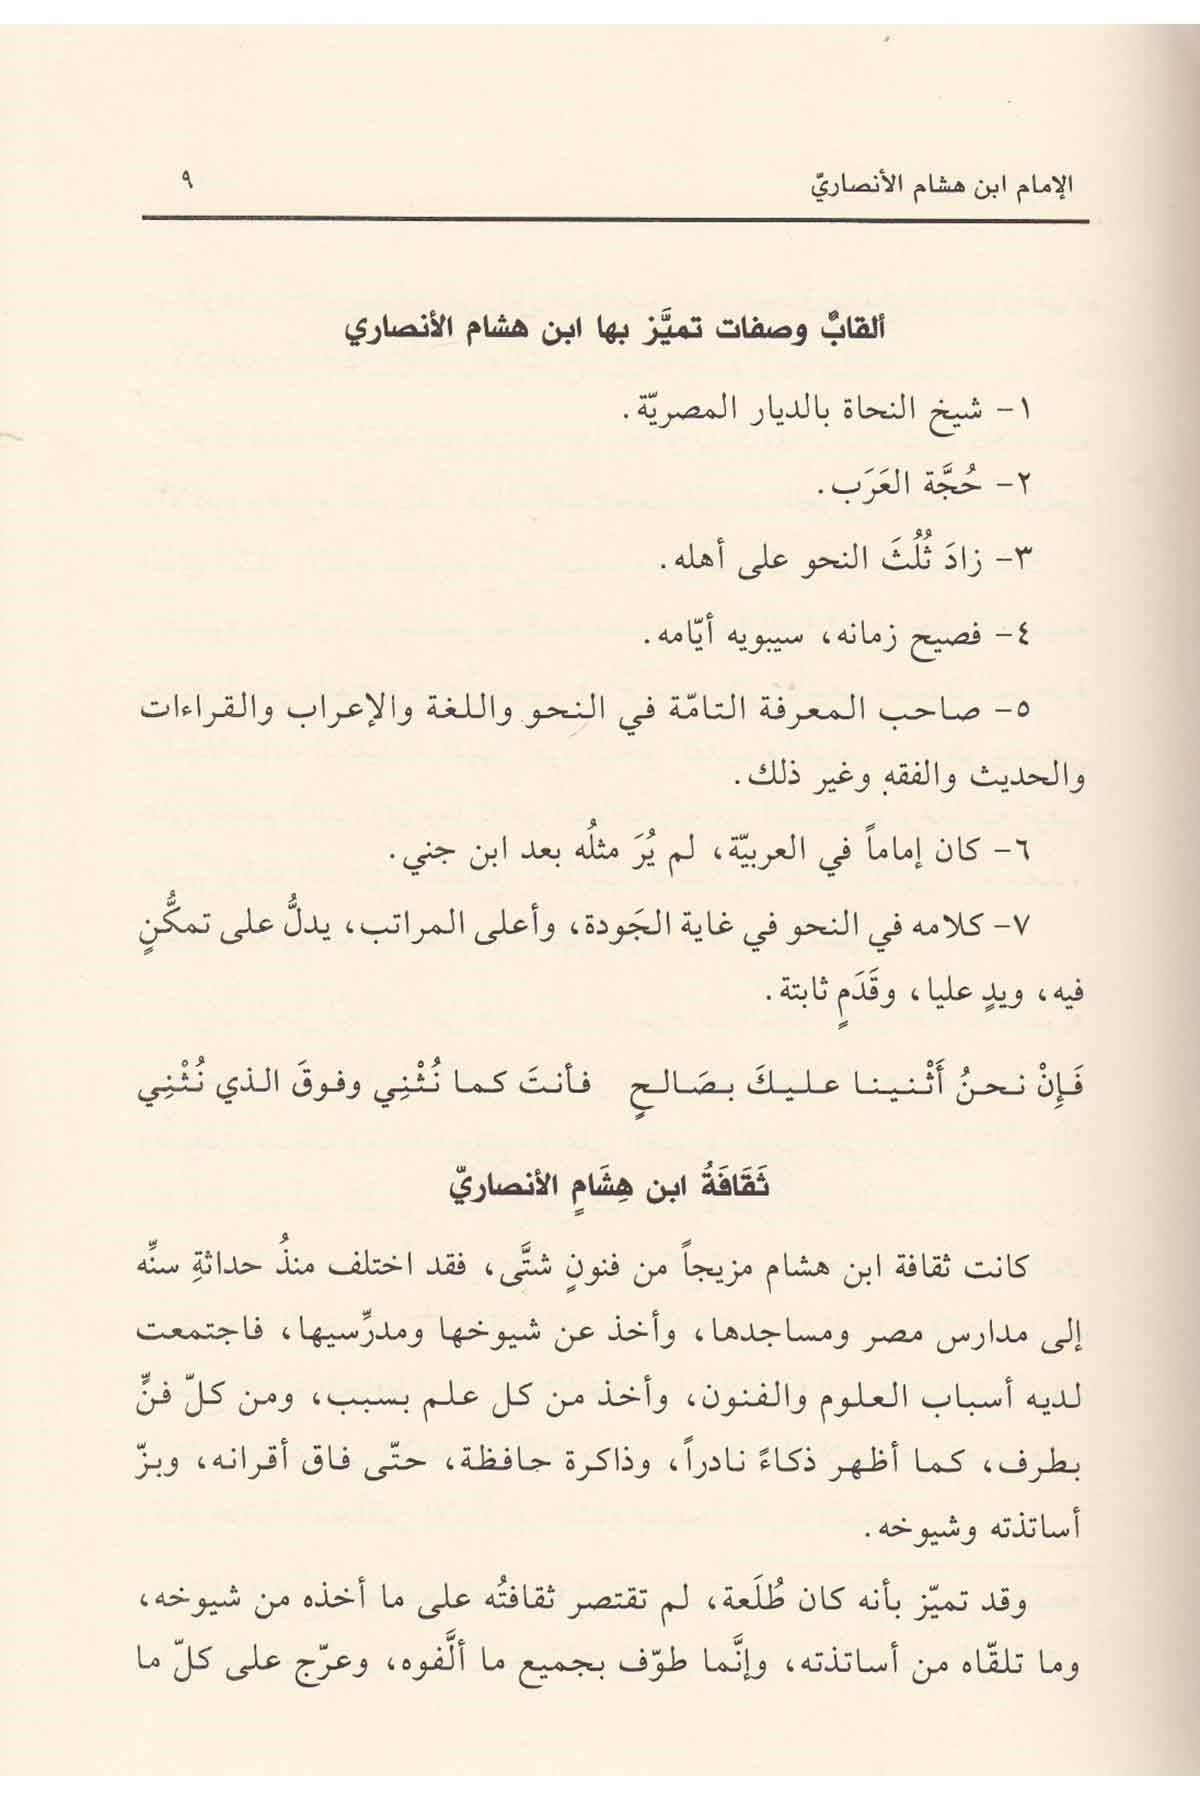 الإمام ابن هشام الأنصاريّ ٩
ألقابٌ وصفات تميَّز بها ابن هشام الأنصاري
١- شيخ النحاة بالديار المصريّة.
٢- حُجَّة العَرَب.
٣- زادَ ثُلُثَ النحو على أهله.
٤- فصيح زمانه، سيبويه أيّامه.
٥- صاحب المعرفة التامّة في النحو واللغة والإعراب والقراءات
والحديث والفقه وغير ذلك.
٦- كان إماماً في العربيّة، لم يُرَ مثلُه بعد ابن جني.
٧- كلامه في النحو في غاية الجَودة، وأعلى المراتب، يدلُّ على تمكُّنٍ
فيه، ويدٍ عليا، وقَدَمٍ ثابتة.
فَإِنْ نحنُ أَثْنينا عليكَ بصَالحٍ فأنتَ كما نُثْنِي وفوقَ الذي نُثْنِي
ثَقَافَةُ ابن هِشَامٍ الأنصاريّ
كانت ثقافة ابن هشام مزيجاً من فنونٍ شتَّى، فقد اختلف منذُ حداثةِ سنِّه
إلى مدارس مصر ومساجدها، وأخذ عن شيوخها ومدرِّسيها، فاجتمعت
لديه أسباب العلوم والفنون، وأخذ من كل علم بسبب، ومن كلّ فنٍّ
بطرف، كما أظهر ذكاءً نادراً، وذاكرة حافظة، حتّى فاق أقرانه، وبزّ
أساتذته وشيوخه.
وقد تميّز بأنه كان طُلَعة، لم تقتصر ثقافتُه على ما أخذه من شيوخه،
وما تلقّاه من أساتذته، وإنَّما طوّف بجميع ما ألَّفوه، وعرّج على كلّ ما